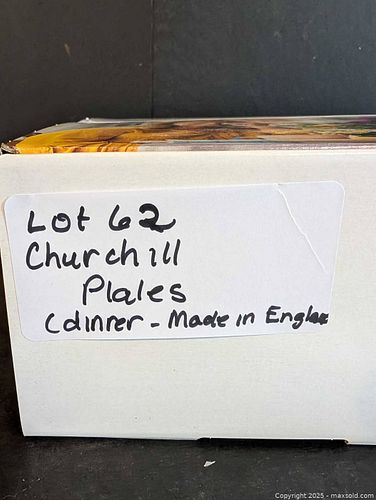 Lot 62
Churchill
Plales
(dinner - Made in
Copyright 2025 - maxsold.com